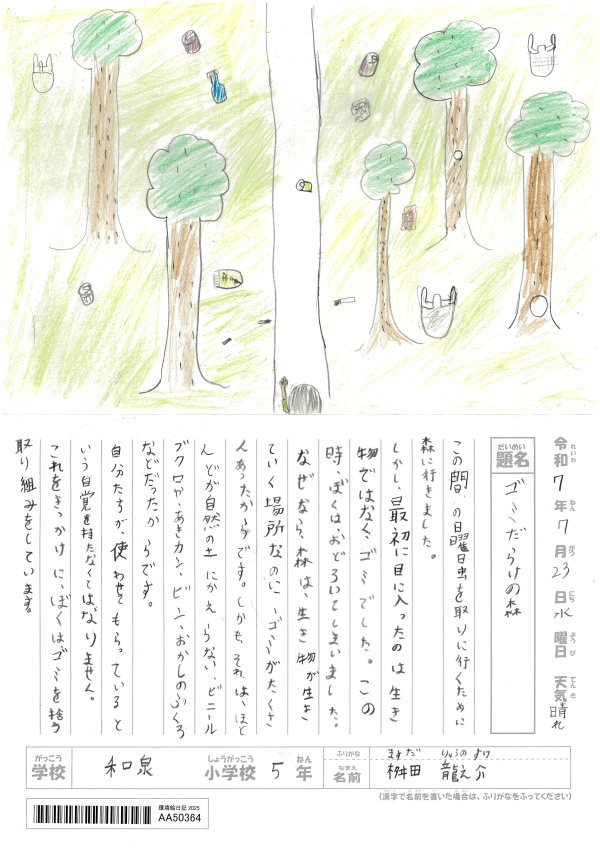 令和7年7月23日水曜日 天気晴れ
れいわ ねん がつ にち ようび てんき
だいめい
題名 ゴミだらけの森
この間の日曜日虫を取りに行くために
森に行きました。
しかし、最初に目に入ったのは生き
物ではなくゴミでした。この
時、ぼくは、おどろいてしまいました。
なぜなら、森は、生き物が生き
ていく場所なのに、ゴミがたくさ
んあったからです。しかも、それは、ほと
んどが自然の土にかえらない、ビニール
ブクロや、あきカン、ビン、おかしのふくろ
などだったからです。
自分たちが、使わせてもらっていると
いう自覚を持たなくてはなりません。
これをきっかけに、ぼくはゴミを拾う
取り組みをしています。
がっこう しょうがっこう ねん
学校 和泉 小学校 5年
ふりがな ますだ りゅうのすけ
なまえ
名前 桝田 龍之介
(漢字で名前を書いた場合は、ふりがなをふってください)
環境絵日記 2025
AA50364